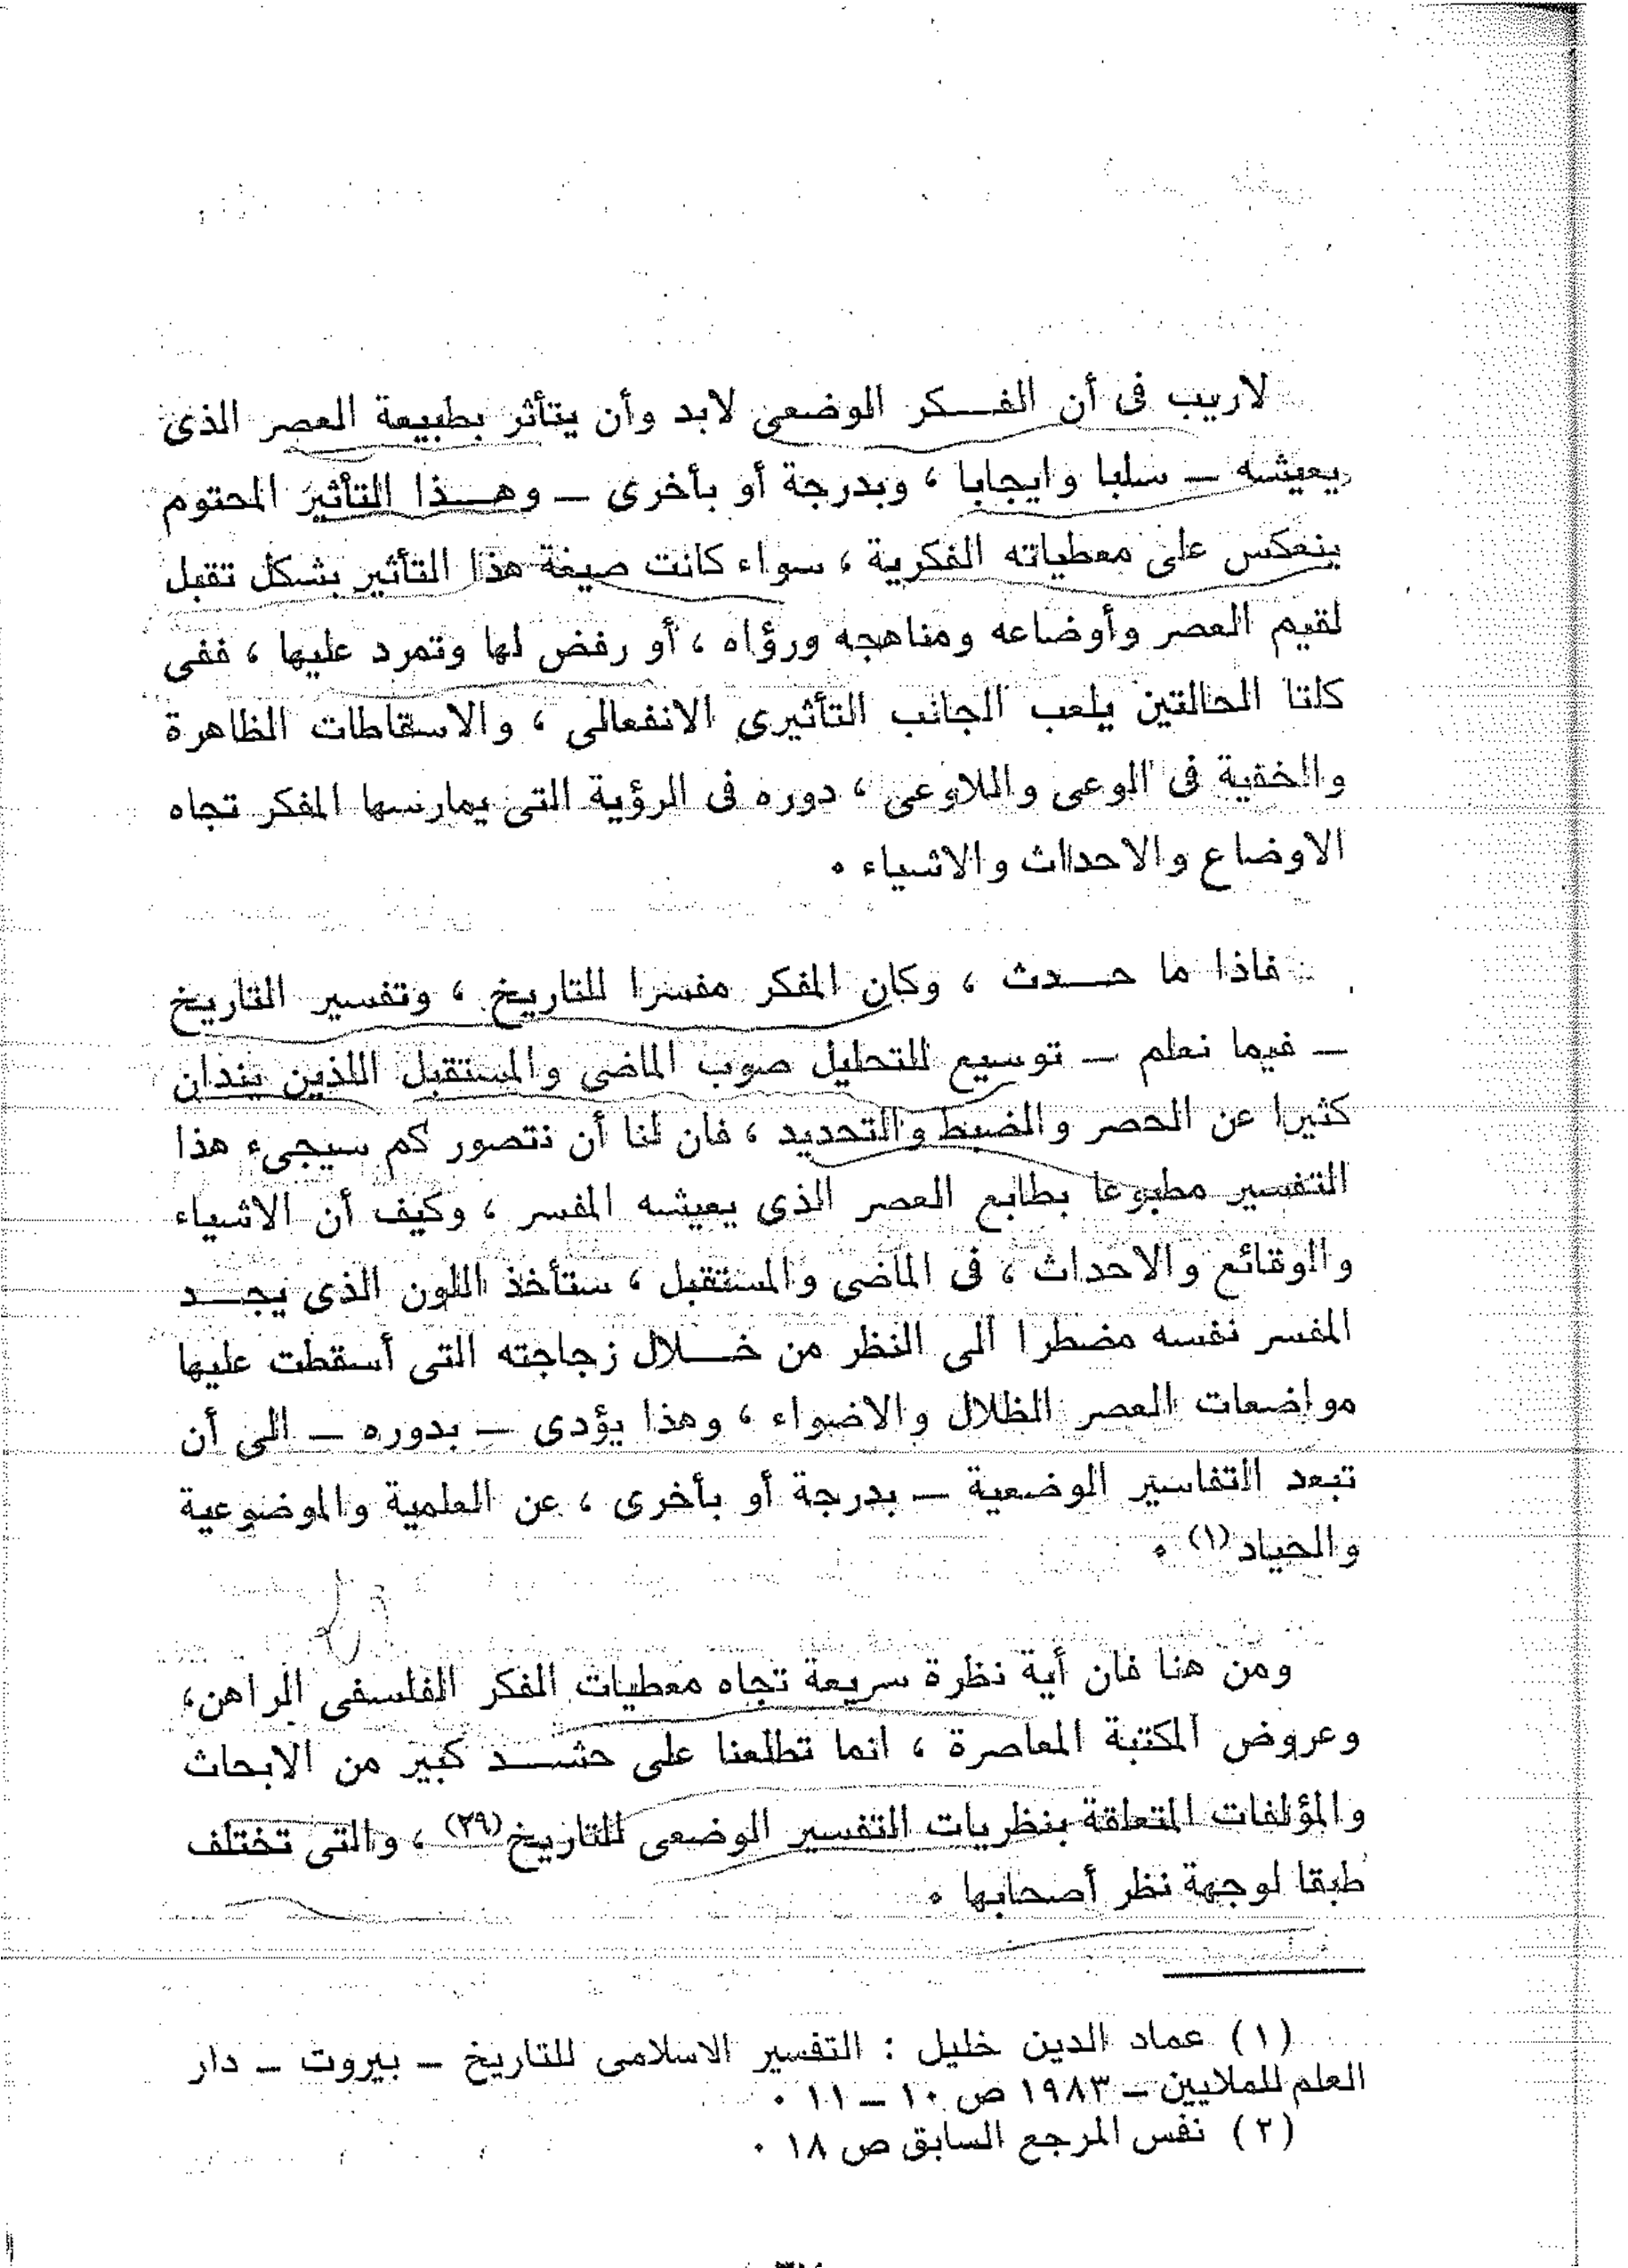 لاريب فى أن الفـــكر الوضعى لابد وأن يتأثر بطبيعة العصر الذى
يعيشه ــ سلبا وايجابا ، وبدرجة أو بأخرى ــ وهـــذا التأثير المحتوم
ينعكس على معطياته الفكرية ، سواء كانت صيغة هذا التأثير بشكل تقبل
لقيم العصر وأوضاعه ومناهجه ورؤاه ، أو رفض لها وتمرد عليها ، ففى
كلتا الحالتين يلعب الجانب التأثيرى الانفعالى ، والاسقاطات الظاهرة
والخفية فى الوعى واللاوعى ، دوره فى الرؤية التى يمارسها المفكر تجاه
الاوضاع والاحداث والاشياء ٠
فاذا ما حـــدث ، وكان المفكر مفسرا للتاريخ ، وتفسير التاريخ
ــ فيما نعلم ــ توسيع للتحليل صوب الماضى والمستقبل اللذين يندان
كثيرا عن الحصر والضبط والتحديد ، فان لنا أن نتصور كم سيجىء هذا
التفسير مطبوعا بطابع العصر الذى يعيشه المفسر ، وكيف أن الاشياء
والوقائع والاحداث ، فى الماضى والمستقبل ، ستأخذ اللون الذى يجـــد
المفسر نفسه مضطرا الى النظر من خـــلال زجاجته التى أسقطت عليها
مواضعات العصر الظلال والاضواء ، وهذا يؤدى ــ بدوره ــ الى أن
تبعد التفاسير الوضعية ــ بدرجة أو بأخرى ، عن العلمية والموضوعية
والحياد(١) ٠
ومن هنا فان أية نظرة سريعة تجاه معطيات الفكر الفلسفى الراهن،
وعروض المكتبة المعاصرة ، انما تطلعنا على حشـــد كبير من الابحاث
والمؤلفات المتعلقة بنظريات التفسير الوضعى للتاريخ(٢٩) ، والتى تختلف
طبقا لوجهة نظر أصحابها ٠
(١) عماد الدين خليل : التفسير الاسلامى للتاريخ ــ بيروت ــ دار
العلم للملايين ــ ١٩٨٣ ص ١٠ ــ ١١ ٠
(٢) نفس المرجع السابق ص ١٨ ٠